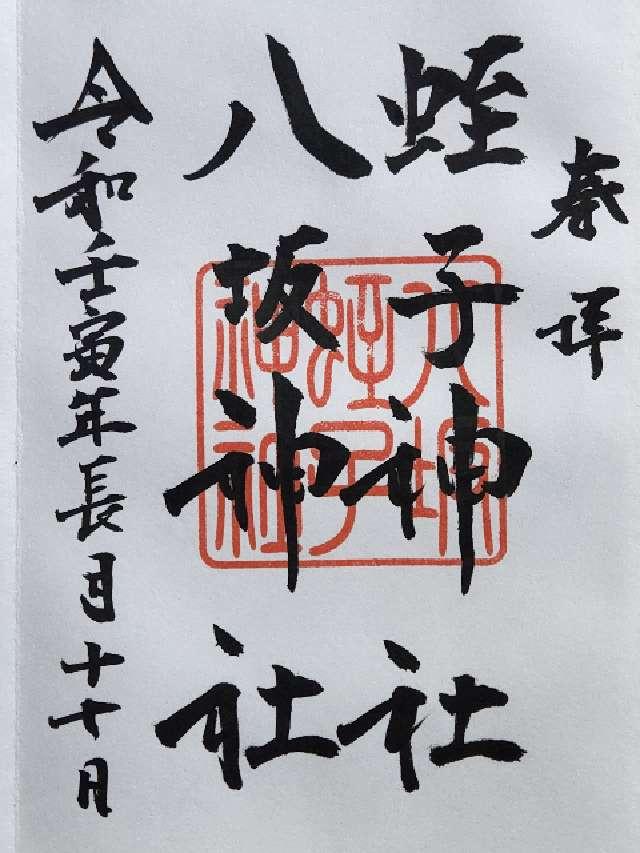 奉拝
蛭子神社
八坂神社
令和壬寅年長月十十日
八坂
蛭子
神社